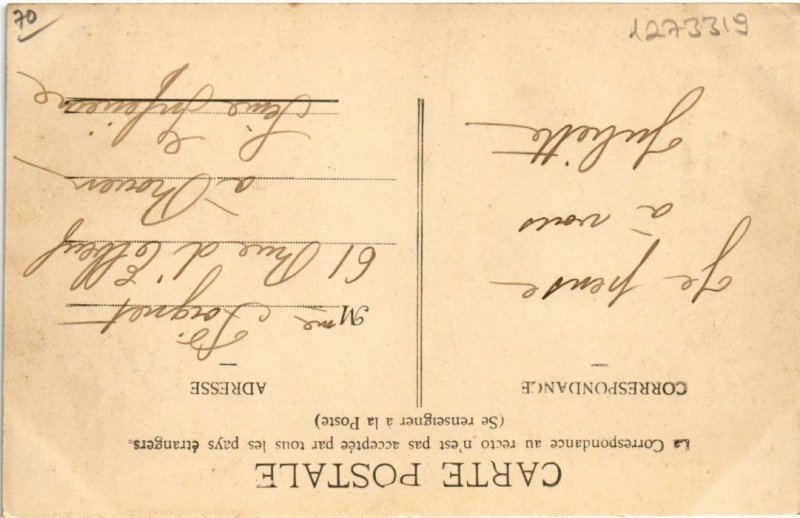 CARTE POSTALE
La Correspondance au recto n'est pas acceptée par tous les pays étrangers.
(Se renseigner à la Poste)
CORRESPONDANCE
Je pense
à vous
Juliette
ADRESSE
Mme
61 Rue d'Elbeuf
à Rouen
Seine Inférieure
1273319
70